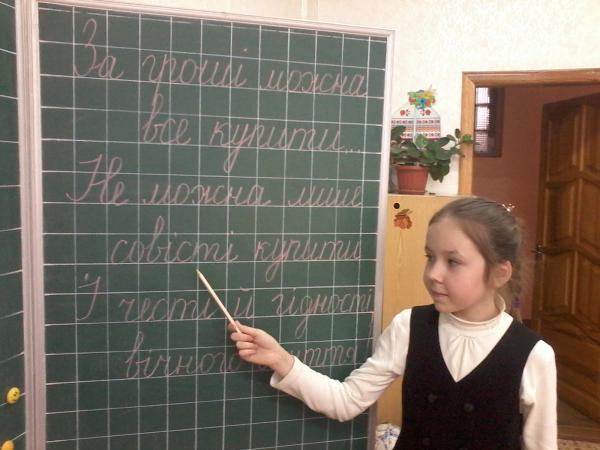 За гроші можна
все купити...
Не можна лише
совісті купити
І честі й гідності,
вічного життя